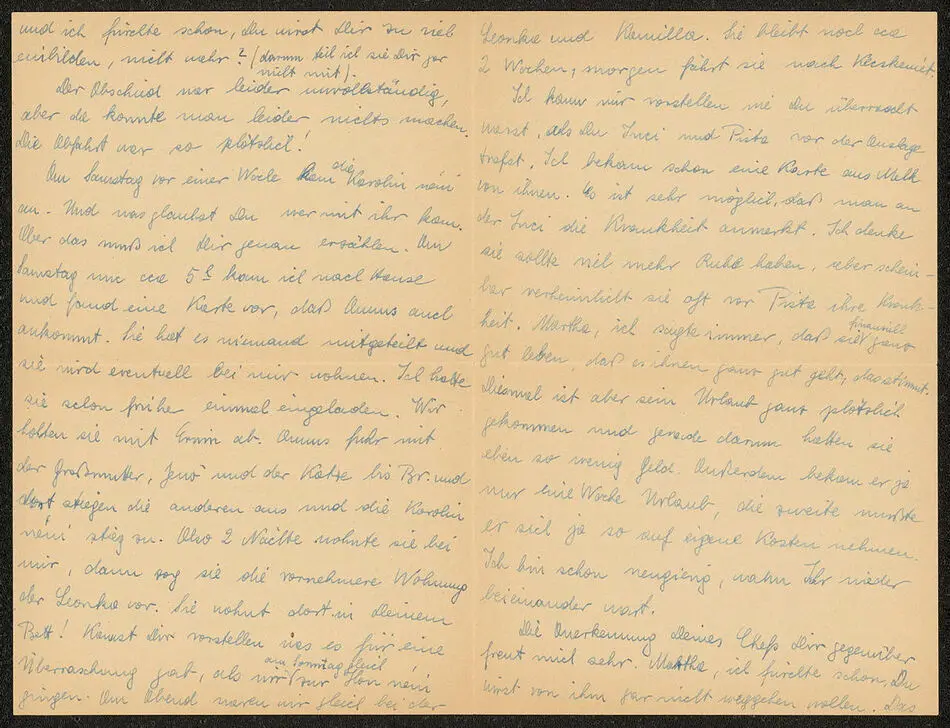 und ich fürchte schon, Du wirst Dir zu viel
einbilden, nicht wahr? (darum teil ich sie Dir gar
nicht mit).
Der Abschied war leider unvollständig,
aber da konnte man leider nichts machen.
Die Abfahrt war so plötzlich!
Am Samstag vor einer Woche kam die Karolin néni
an. Und was glaubst Du wer mit ihr kam.
Aber das muß ich Dir genau erzählen. Am
Samstag um cca 5h kam ich nach Hause
und fand eine Karte vor, daß Annus auch
ankommt. Sie hat es niemand mitgeteilt und
sie wird eventuell bei mir wohnen. Ich hatte
sie schon früher einmal eingeladen. Wir
holten sie mit Erwin ab. Annus fuhr mit
der Großmutter, Jenö und der Katze bis Br. und
dort stiegen die anderen aus und die Karolin
néni stieg zu. Also 2 Nächte wohnte sie bei
mir, dann zog sie die vornehmere Wohnung
der Leonka vor. Sie wohnt dort in Deinem
Bett! Kannst Dir vorstellen was es für eine
Überraschung gab, als wir am Sonntag gleich zur néni
gingen. Am Abend waren wir gleich bei der
Leonka und Kamilla. Sie bleibt noch cca
2 Wochen, morgen fährt sie nach Kecskemét.
Ich kann mir vorstellen wie Du überrascht
warst, als Du Inci und Pista vor der Auslage
trafst. Ich bekam schon eine Karte aus Melk
von ihnen. Es ist sehr möglich, daß man an
der Inci die Krankheit anmerkt. Ich denke
sie sollte viel mehr Ruhe haben, aber schein-
bar verheimlicht sie oft vor Pista ihre Krank-
heit. Martha, ich sagte immer, daß sie finanziell ganz
gut leben, daß es ihnen ganz gut geht, das stimmt.
Diesmal ist aber sein Urlaub ganz plötzlich
gekommen und gerade darum hatten sie
eben so wenig Geld. Außerdem bekam er ja
nur eine Woche Urlaub, die zweite mußte
er sich ja so auf eigene Kosten nehmen.
Ich bin schon neugierig, wann Ihr wieder
beieinander wart.
Die Anerkennung Deines Chefs Dir gegenüber
freut mich sehr. Martha, ich fürchte schon, Du
wirst von ihm gar nicht weggehen wollen. Das